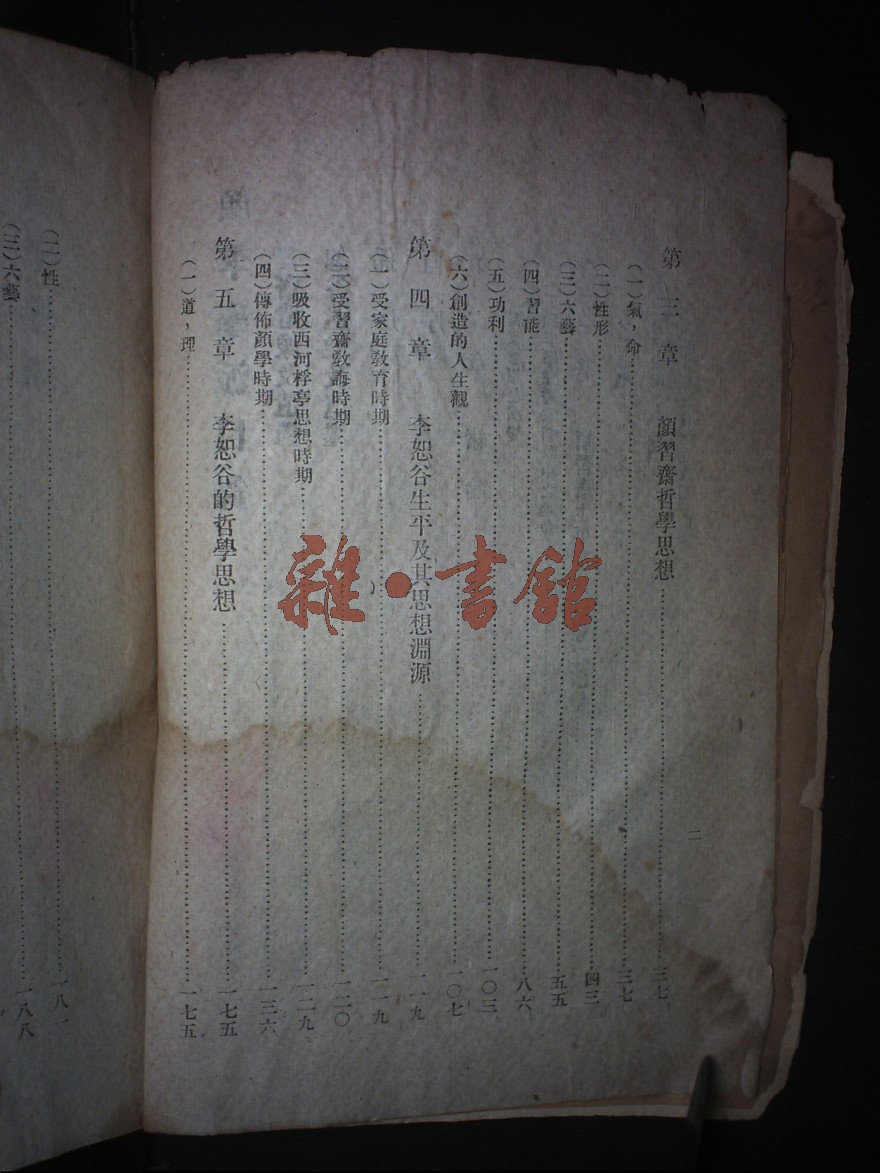 第三章　顏習齋哲學思想……三七
(一)氣，命……三七
(二)性形……四三
(三)六藝……五五
(四)習能……八六
(五)功利……一〇三
(六)創造的人生觀……一〇七
第四章　李恕谷生平及其思想淵源……一一九
(一)受家庭教育時期……一一九
(二)受習齋教誨時期……一二〇
(三)吸收西河桴亭思想時期……一二九
(四)傳佈顏學時期……一三六
第五章　李恕谷的哲學思想……一七五
(一)道，理……一七五
二
(二)性……一八一
(三)六藝……一八八
雜·書館